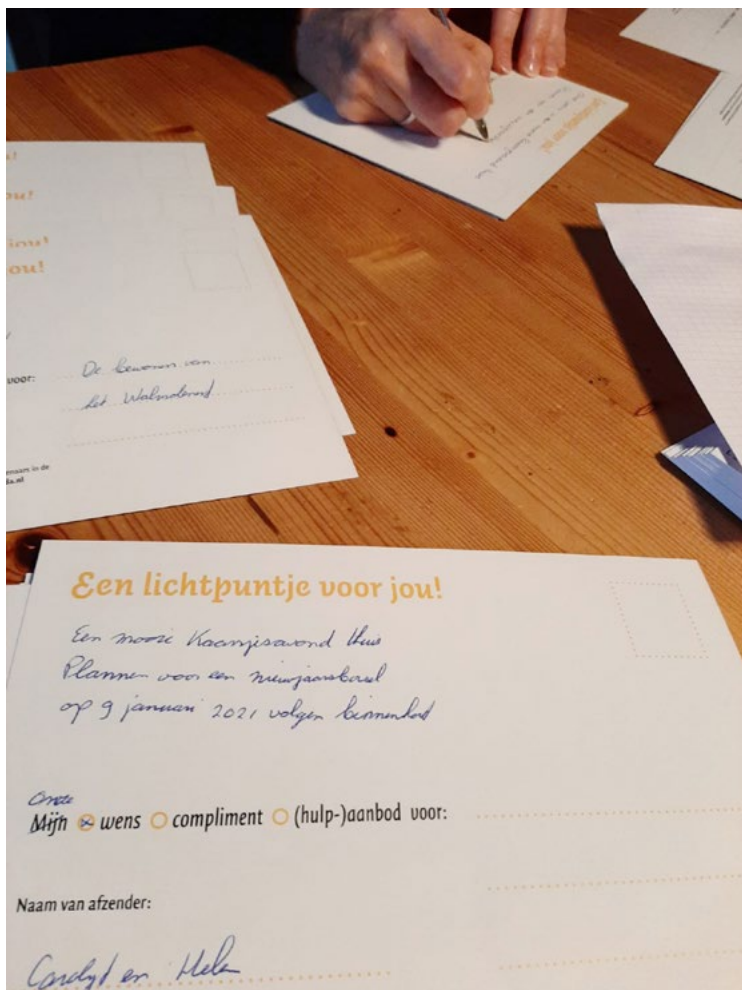 Een lichtpuntje voor jou!
ou!
jou!
jou!
voor:
De bewoners van
het
ensnaam in de
da.nl
Een lichtpuntje voor jou!
Een mooie Kaarsjesavond thuis
Plannen voor een nieuwjaarsborrel
op 9 januari 2021 volgen binnenkort
Onze
Mijn wens compliment (hulp-)aanbod voor:
Naam van afzender:
en Helen